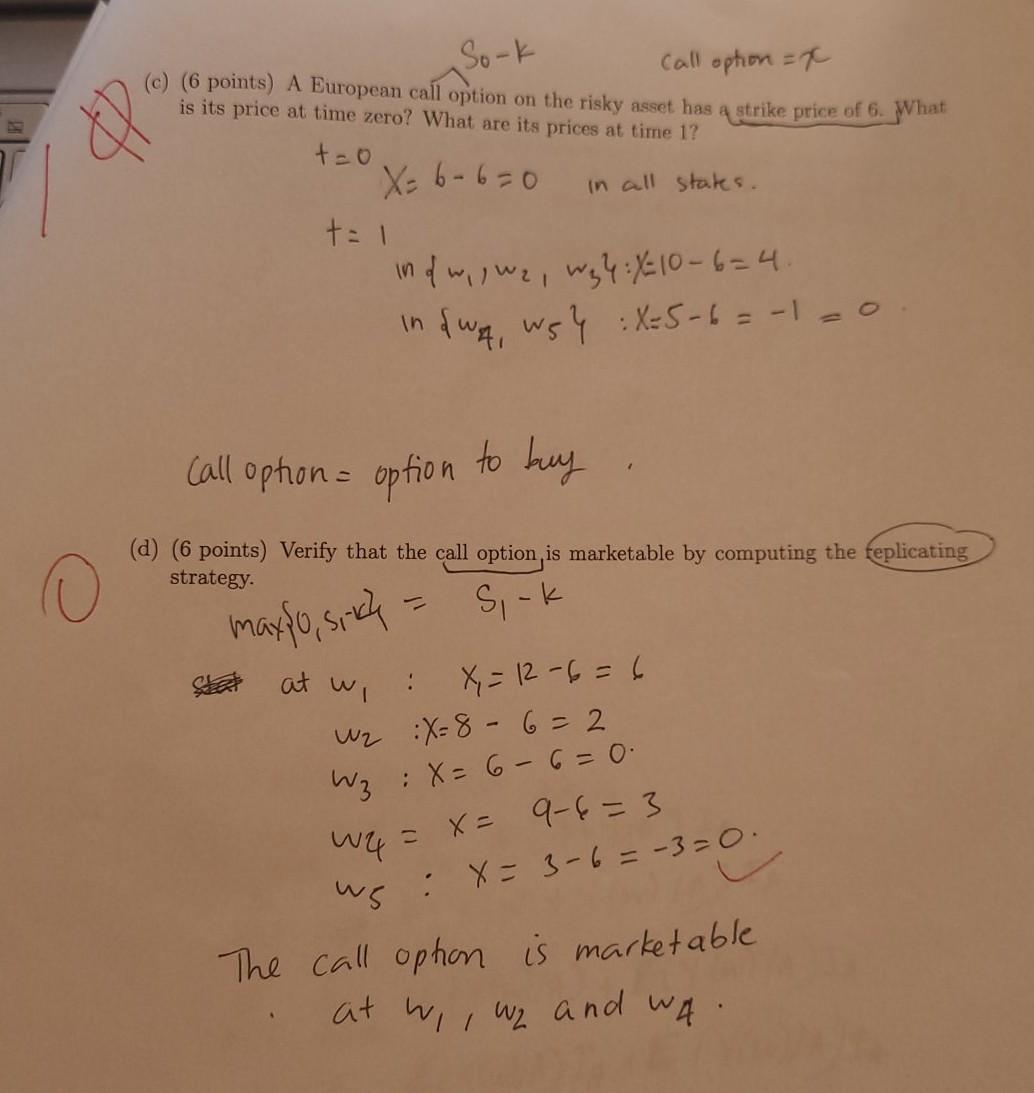 S₀-k
call option = x
(c) (6 points) A European call option on the risky asset has a strike price of 6. What
is its price at time zero? What are its prices at time 1?
1
t=0
X= 6-6=0 in all states.
t= 1
in {w₁, w₂, w₃}: X=10-6=4.
in {w₄, w₅} : X=5-6 = -1 = 0.
Call option = option to buy.
(d) (6 points) Verify that the call option is marketable by computing the replicating
strategy.
0
max{0, S₁-k} = S₁-k
at w₁ : X₁= 12-6 = 6
w₂ : X= 8 - 6 = 2
w₃ : X= 6 - 6 = 0.
w₄ = X= 9-6 = 3
w₅ : X= 3-6 = -3 = 0.
The call option is marketable
at w₁, w₂ and w₄.